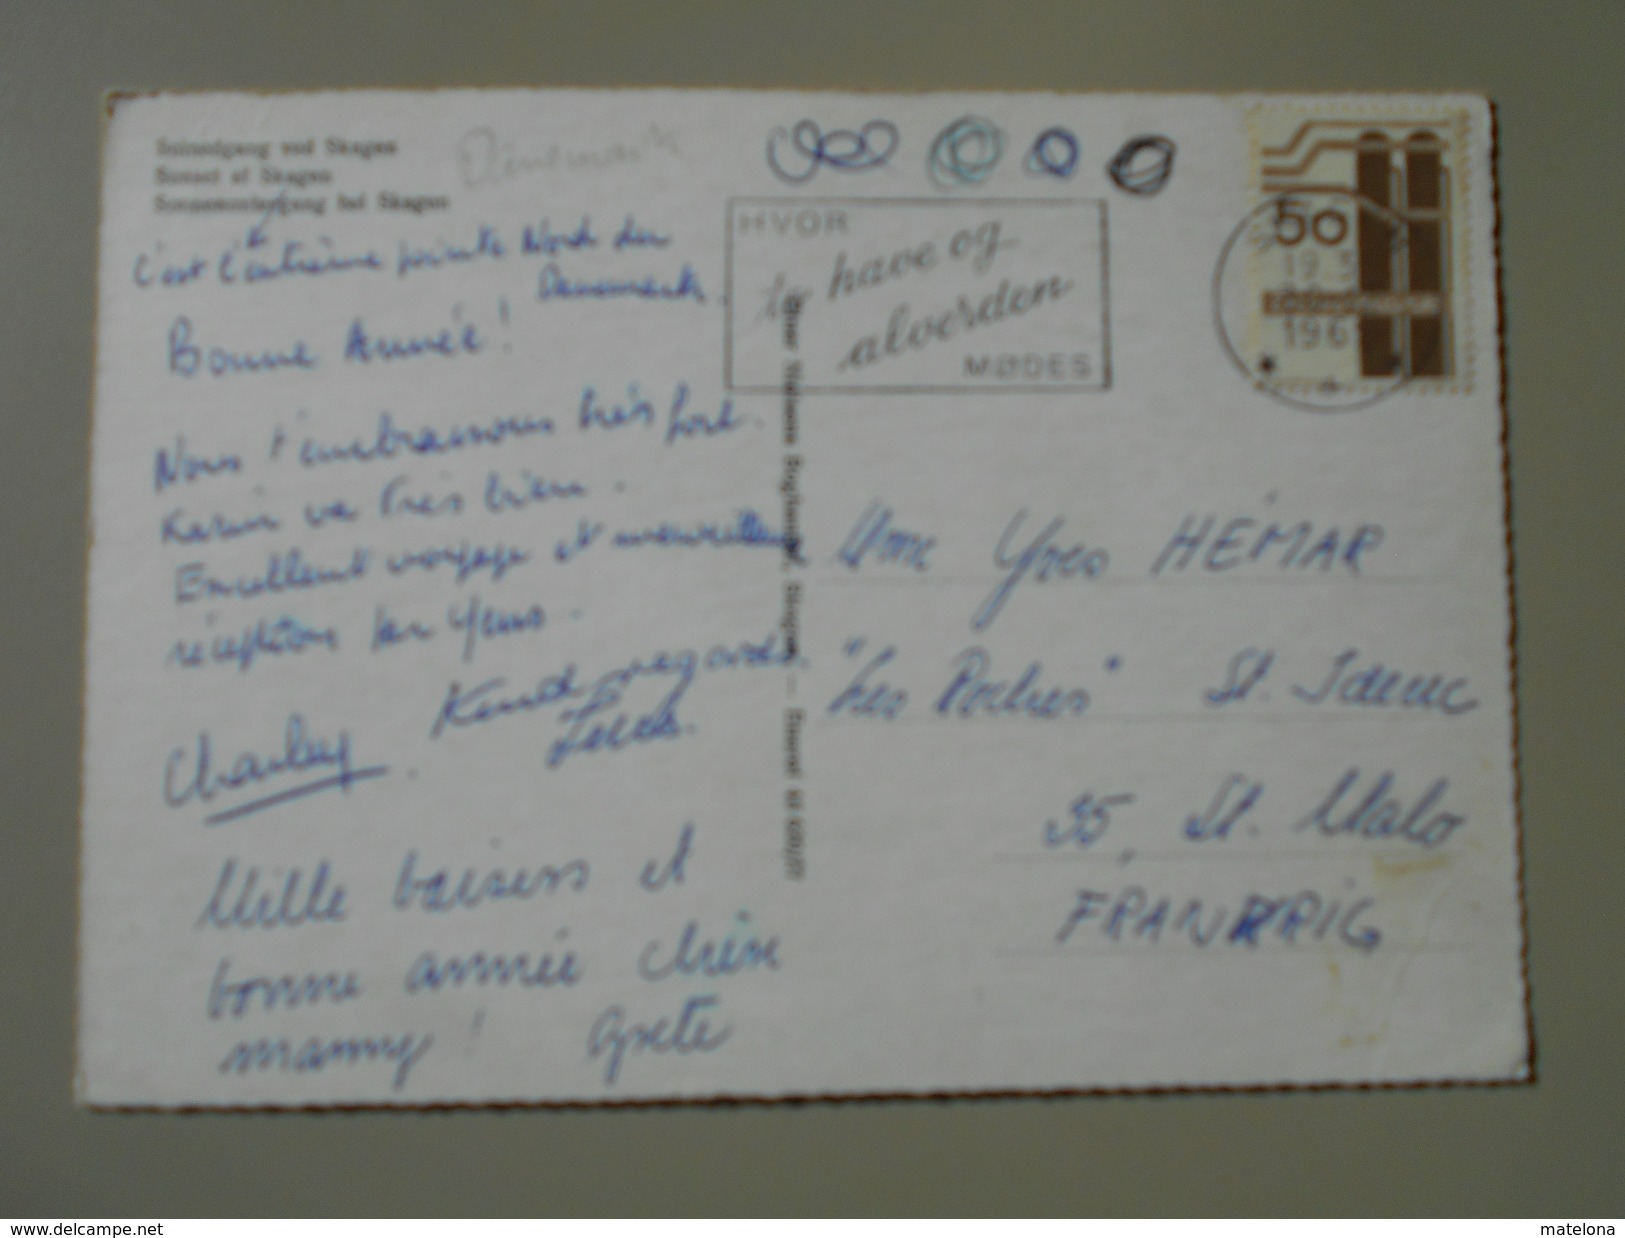 Solnedgang ved Skagen
Sunset at Skagen
Sonnenuntergang bei Skagen
Danemark
C'est l'extrème pointe Nord du
Danemark.
Bonne Année!
Nous t'embrassons très fort.
Karin va très bien.
Excellent voyage et merveilleuse
réception
Charley
Knud
regards
Mille baisers et
bonne année chère
mamy! Grete
HVOR
to have og
alverden
MØDES
50
19.3
196
Eneret
Skagen
Mme Yves HÉMAR
"Les Roches" St. Ideuc
35, St. Malo
FRANKRIG
www.delcampe.net
matelona